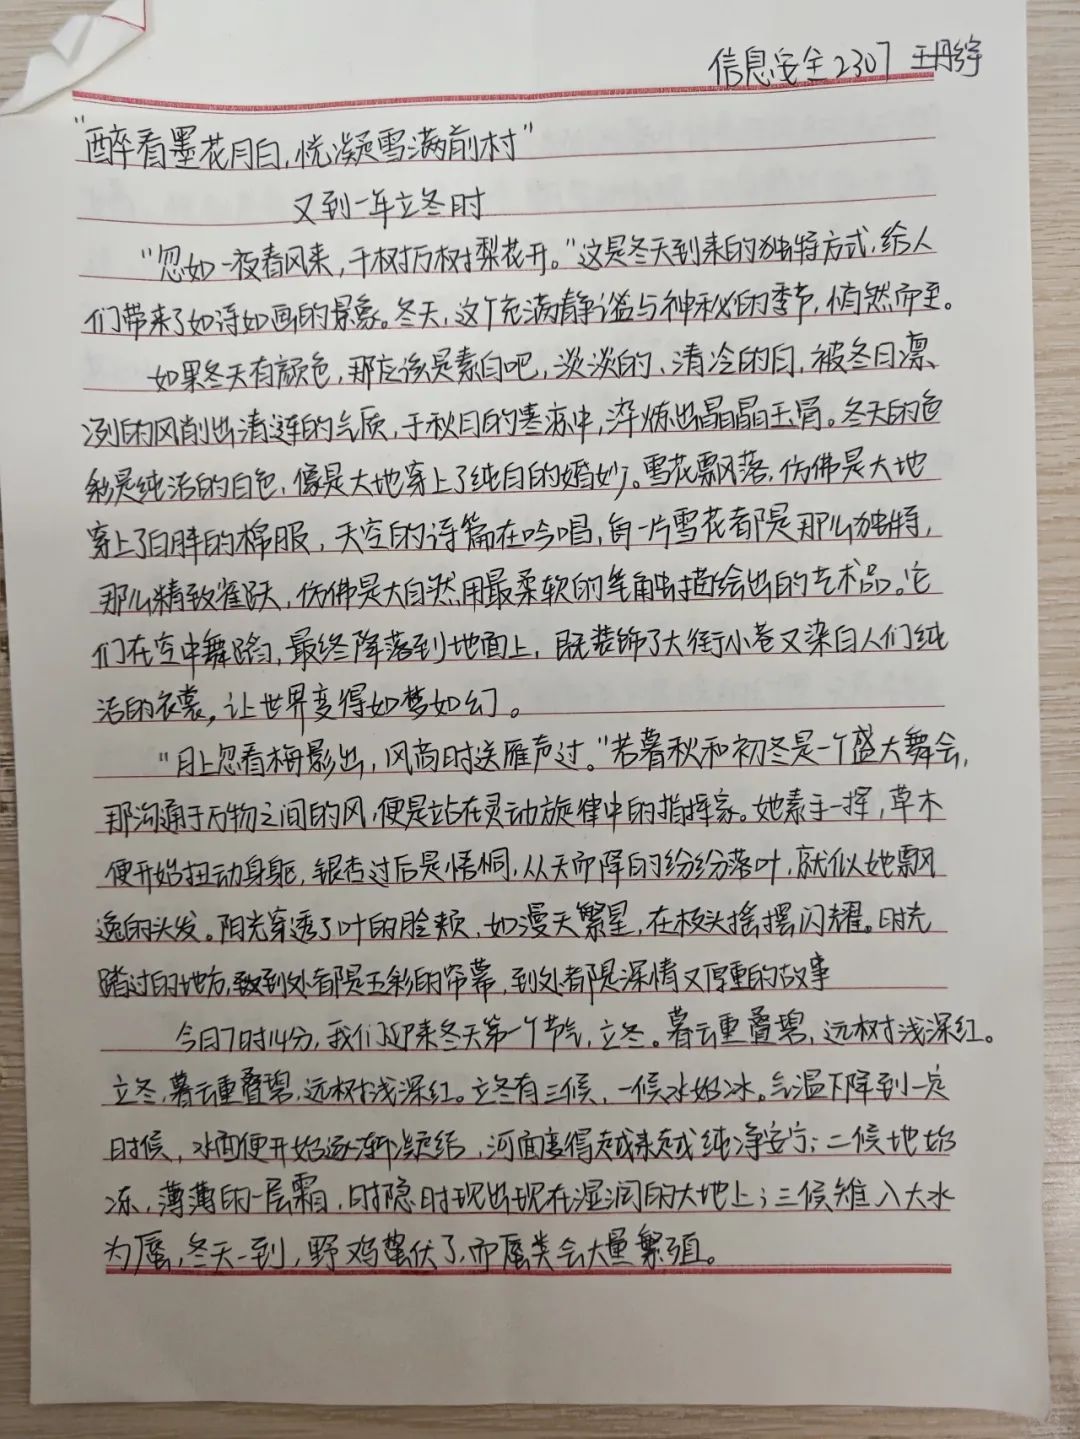 信息安全2307 王丹婷
"醉看墨花月白,恍凝雪满前村"
又到一年立冬时
"忽如一夜春风来,千树万树梨花开。"这是冬天到来的独特方式,给人
们带来了如诗如画的景象。冬天,这个充满静谧与神秘的季节,悄然而至。
如果冬天有颜色,那应该是素白吧,淡淡的、清冷的白,被冬日凛
冽的风削出清涟的气质,于秋日的寒凉中,淬炼出晶晶玉骨。冬天的色
彩是纯洁的白色,像是大地穿上了纯白的婚纱。雪花飘落,仿佛是大地
穿上了白胖的棉服,天空的诗篇在吟唱,每一片雪花都是那么独特,
那么精致雀跃,仿佛是大自然用最柔软的笔触描绘出的艺术品。它
们在空中舞蹈,最终降落到地面上,既装饰了大街小巷又染白人们纯
洁的衣裳,让世界变得如梦如幻。
"月上忽看梅影出,风高时送雁声过。"若暮秋和初冬是一个盛大舞会,
那沟通于万物之间的风,便是站在灵动旋律中的指挥家。她素手一挥,草木
便开始扭动身躯,银杏过后是梧桐,从天而降的纷纷落叶,就似她飘
逸的头发。阳光穿透了叶的脸颊,如漫天繁星,在枝头摇摆闪耀。时光
踏过的地方,到处都是五彩的帘幕,到处都是深情又厚重的故事
今日7时14分,我们迎来冬天第一个节气,立冬。暮云重叠碧,远树浅深红。
立冬,暮云重叠碧,远树浅深红。立冬有三候,一候水始冰。气温下降到一定
时候,水面便开始逐渐凝结,河面变得越来越纯净安宁;二候地始
冻,薄薄的一层霜,时隐时现出现在湿润的大地上;三候雉入大水
为蜃,冬天一到,野鸡蛰伏了,而蜃类会大量繁殖。